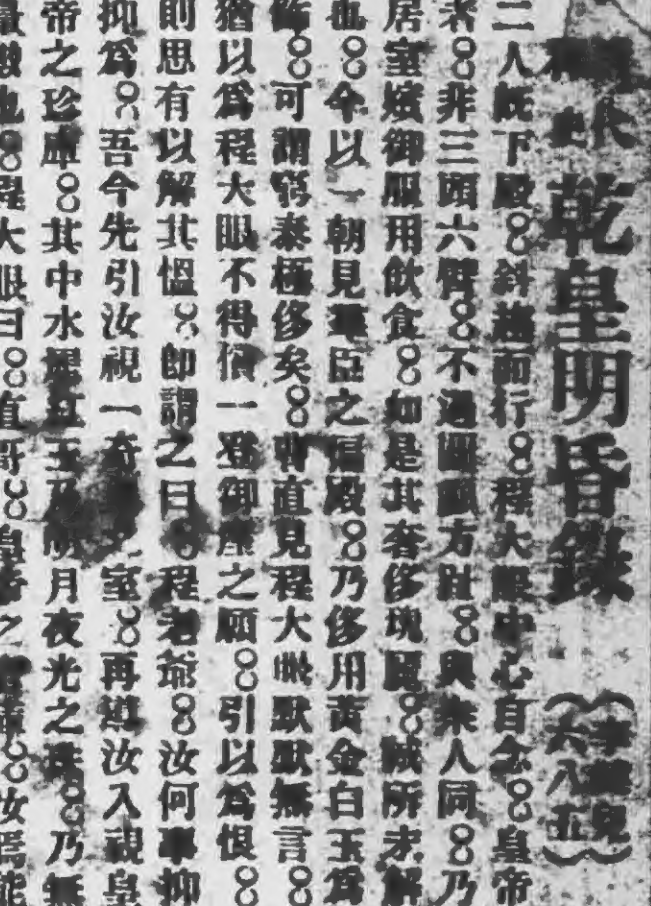 乾皇明昏錄
六八五
二人旣下殿。斜趨而行。程大眼中心自念。皇帝
者。非三頭六臂。不過圓顱方趾。與衆人同。乃
居室嬪御服用飲食。如是其奢侈瑰麗。誠所未解
也。今以一朝見羣臣之偏殿。乃侈用黃金白玉爲
飾。可謂窮泰極侈矣。曹直見程大眼默默無言。
猶以爲程大眼不得償一登御座之願。引以爲恨。
則思有以解其慍。卽謂之曰。程老爺。汝何事抑
抑爲。吾今先引汝視一奇 室。再導汝入視皇
帝之珍庫。其中水 紅玉及明月夜光之珠。乃無
也。程大眼曰。直哥。皇帝之 。汝焉能